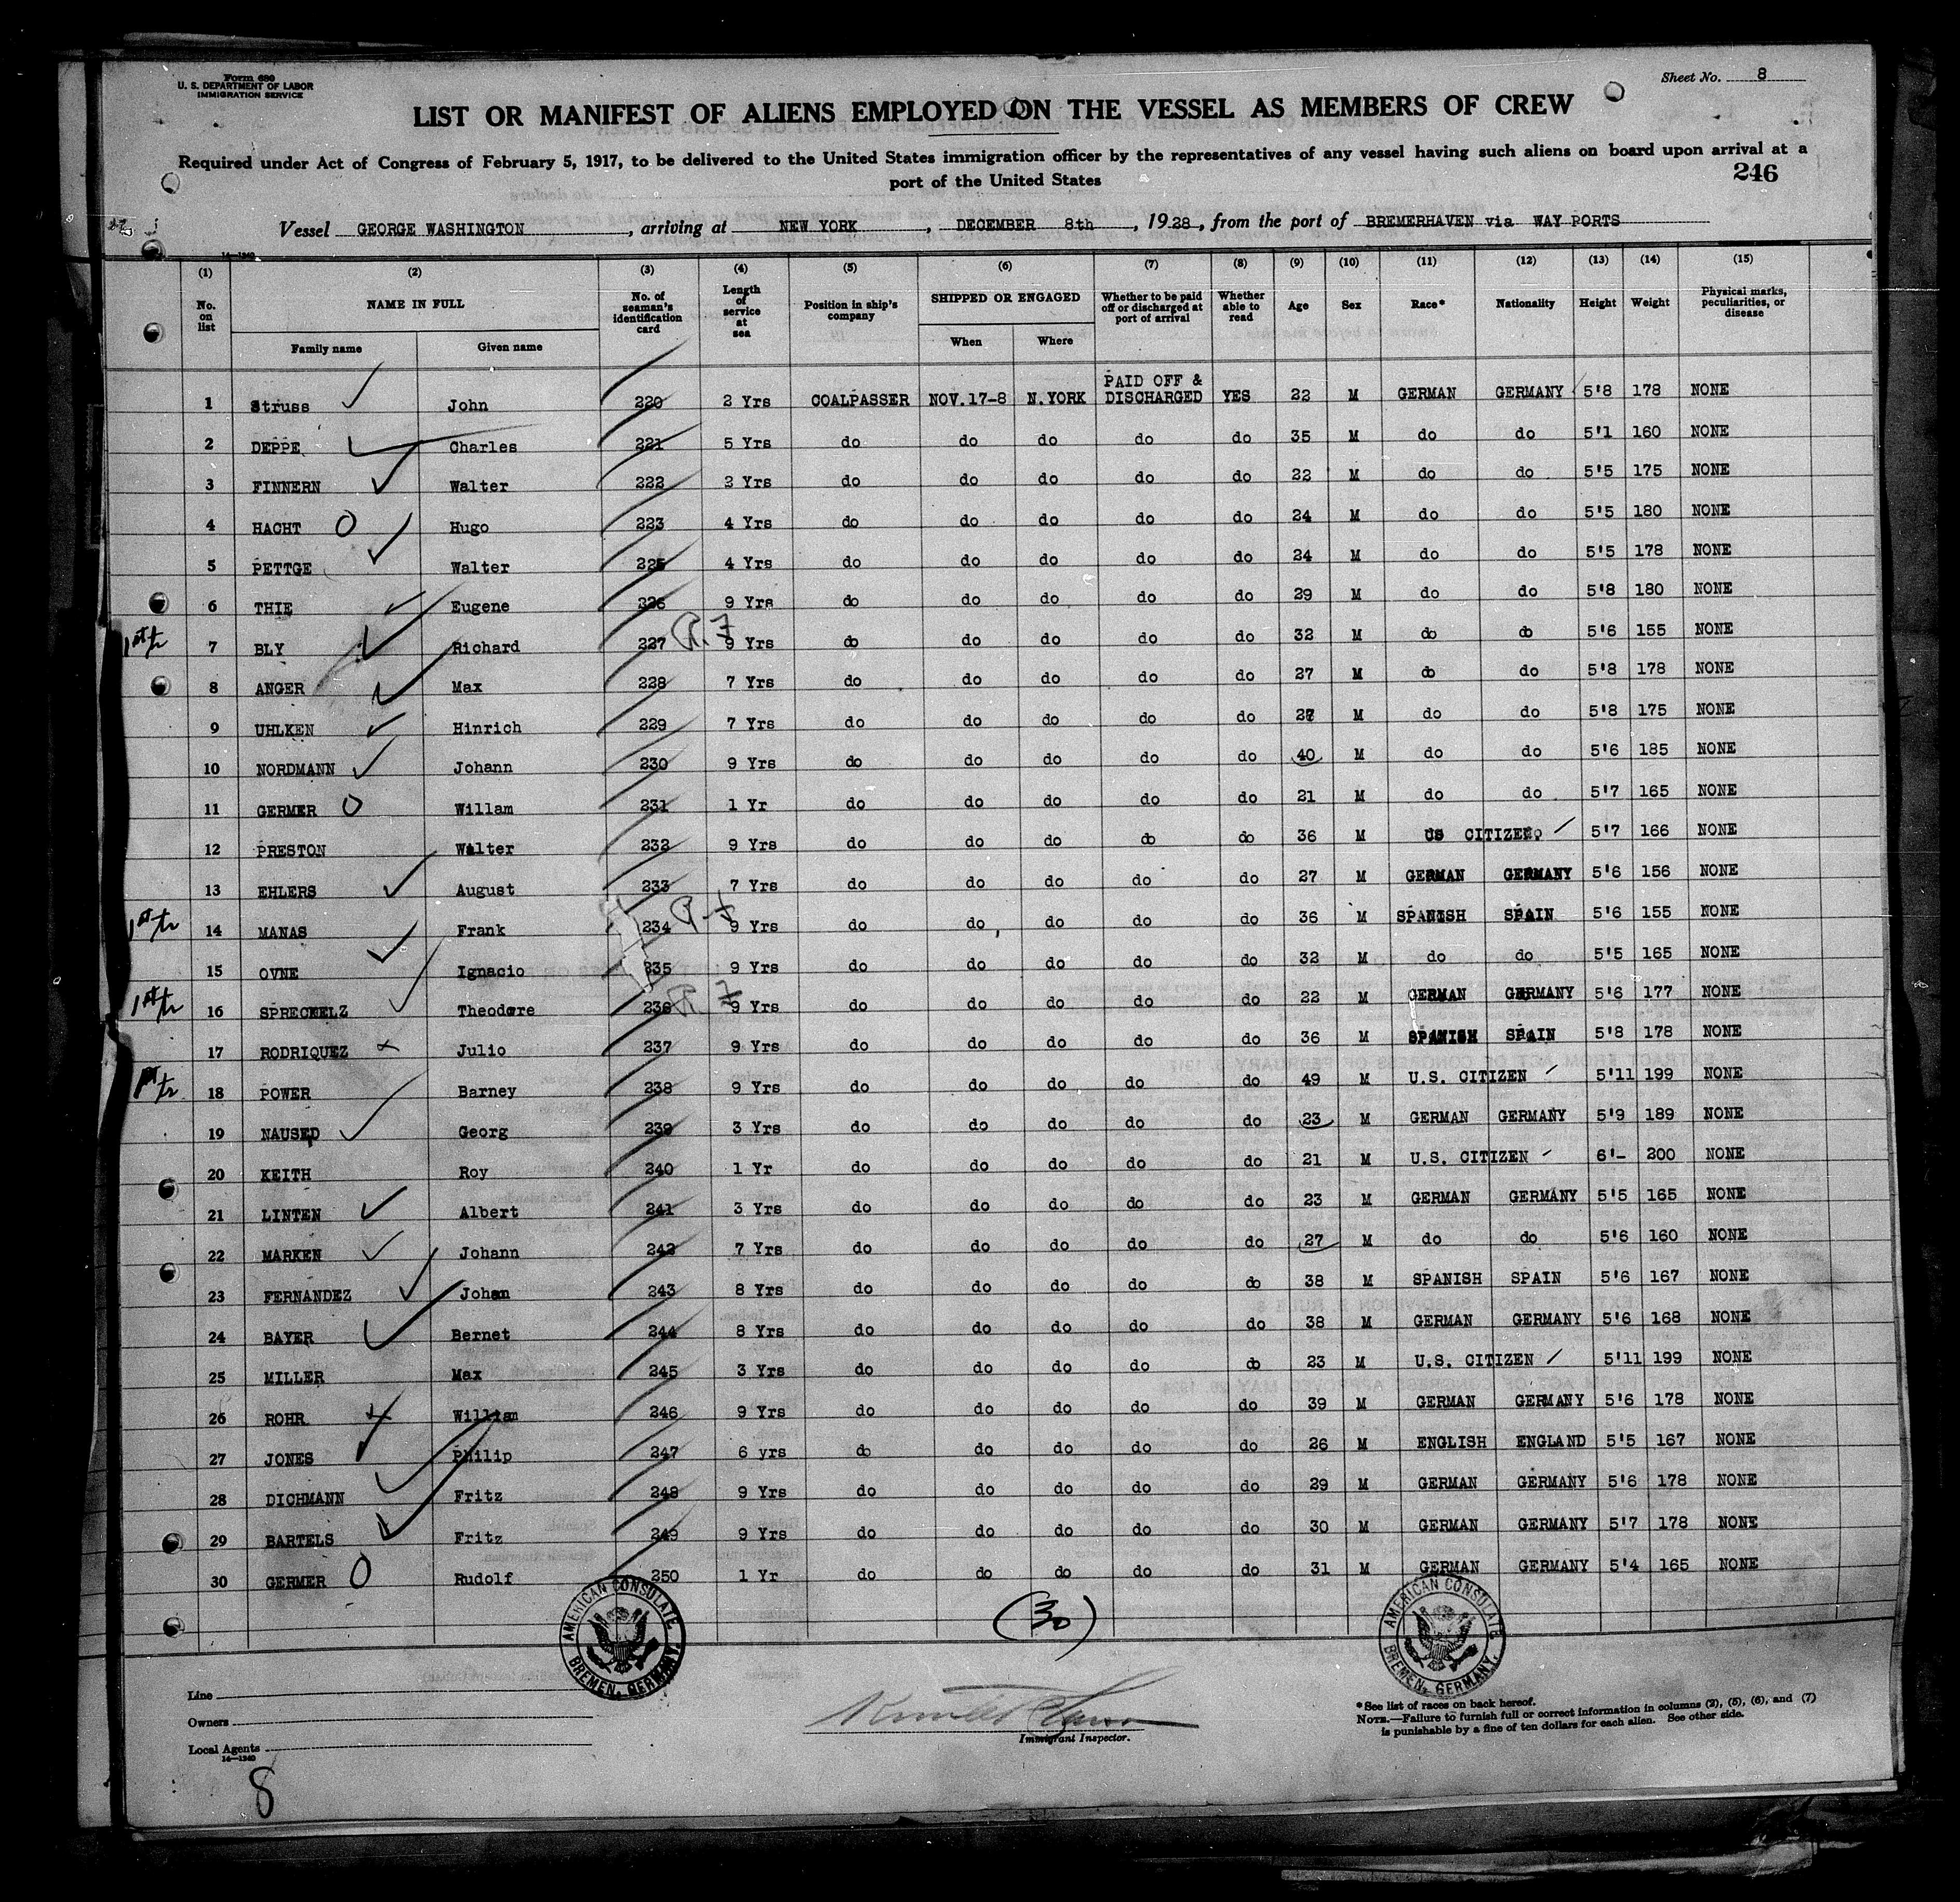 Form 680
U. S. DEPARTMENT OF LABOR
IMMIGRATION SERVICE
Sheet No. 8
LIST OR MANIFEST OF ALIENS EMPLOYED ON THE VESSEL AS MEMBERS OF CREW
Required under Act of Congress of February 5, 1917, to be delivered to the United States immigration officer by the representatives of any vessel having such aliens on board upon arrival at a
port of the United States
246
Vessel GEORGE WASHINGTON, arriving at NEW YORK, DECEMBER 8th, 1928, from the port of BREMERHAVEN via WAY PORTS
14—1240
(1) (2) (3) (4) (5) (6) (7) (8) (9) (10) (11) (12) (13) (14) (15)
No. on list NAME IN FULL No. of seaman's identification card Length of service at sea Position in ship's company SHIPPED OR ENGAGED Whether to be paid off or discharged at port of arrival Whether able to read Age Sex Race* Nationality Height Weight Physical marks, peculiarities, or disease
Family name Given name When Where
1 Struss John 220 2 Yrs COALPASSER NOV.17-8 N.YORK PAID OFF & DISCHARGED YES 22 M GERMAN GERMANY 5'8 178 NONE
2 DEPPE Charles 221 5 Yrs do do do do do 35 M do do 5'1 160 NONE
3 FINNERN Walter 222 2 Yrs do do do do do 22 M do do 5'5 175 NONE
4 HACHT O Hugo 223 4 Yrs do do do do do 24 M do do 5'5 180 NONE
5 PETTGE Walter 225 4 Yrs do do do do do 24 M do do 5'5 178 NONE
6 THIE Eugene 226 9 Yrs do do do do do 29 M do do 5'8 180 NONE
1st tr 7 BLY Richard 227 P.F 9 Yrs do do do do do 32 M do do 5'6 155 NONE
8 ANGER Max 228 7 Yrs do do do do do 27 M do do 5'8 178 NONE
9 UHLKEN Hinrich 229 7 Yrs do do do do do 27 M do do 5'8 175 NONE
10 NORDMANN Johann 230 9 Yrs do do do do do 40 M do do 5'6 185 NONE
11 GERMER O Willam 231 1 Yr do do do do do 21 M do do 5'7 165 NONE
12 PRESTON Walter 232 9 Yrs do do do do do 36 M US CITIZEN 5'7 166 NONE
13 EHLERS August 233 7 Yrs do do do do do 27 M GERMAN GERMANY 5'6 156 NONE
1st tr 14 MANAS Frank 234 P.F 9 Yrs do do do do do 36 M SPANISH SPAIN 5'6 155 NONE
15 OVNE Ignacio 235 9 Yrs do do do do do 32 M do do 5'5 165 NONE
1st tr 16 SPRECKELZ Theodore 236 P.F 9 Yrs do do do do do 22 M GERMAN GERMANY 5'6 177 NONE
17 RODRIQUEZ x Julio 237 9 Yrs do do do do do 36 M SPANISH SPAIN 5'8 178 NONE
1st tr 18 POWER Barney 238 9 Yrs do do do do do 49 M U.S. CITIZEN 5'11 199 NONE
19 NAUSED Georg 239 3 Yrs do do do do do 23 M GERMAN GERMANY 5'9 189 NONE
20 KEITH Roy 240 1 Yr do do do do do 21 M U.S. CITIZEN 6'- 200 NONE
21 LINTEN Albert 241 3 Yrs do do do do do 23 M GERMAN GERMANY 5'5 165 NONE
22 MARKEN Johann 242 7 Yrs do do do do do 27 M do do 5'6 160 NONE
23 FERNANDEZ Johan 243 8 Yrs do do do do do 38 M SPANISH SPAIN 5'6 167 NONE
24 BAYER Bernet 244 8 Yrs do do do do do 38 M GERMAN GERMANY 5'6 168 NONE
25 MILLER Max 245 3 Yrs do do do do do 23 M U.S. CITIZEN 5'11 199 NONE
26 ROHR x William 246 9 Yrs do do do do do 39 M GERMAN GERMANY 5'6 178 NONE
27 JONES Philip 247 6 yrs do do do do do 26 M ENGLISH ENGLAND 5'5 167 NONE
28 DICHMANN Fritz 248 9 Yrs do do do do do 29 M GERMAN GERMANY 5'6 178 NONE
29 BARTELS Fritz 249 9 Yrs do do do do do 30 M GERMAN GERMANY 5'7 178 NONE
30 GERMER O Rudolf 250 1 Yr do do do do do 31 M GERMAN GERMANY 5'4 165 NONE
(30)
AMERICAN CONSULATE BREMEN, GERMANY.
AMERICAN CONSULATE BREMEN, GERMANY.
Line
Owners
Local Agents
14—1240
8
Immigrant Inspector.
*See list of races on back hereof.
NOTE.—Failure to furnish full or correct information in columns (2), (5), (6), and (7)
is punishable by a fine of ten dollars for each alien. See other side.